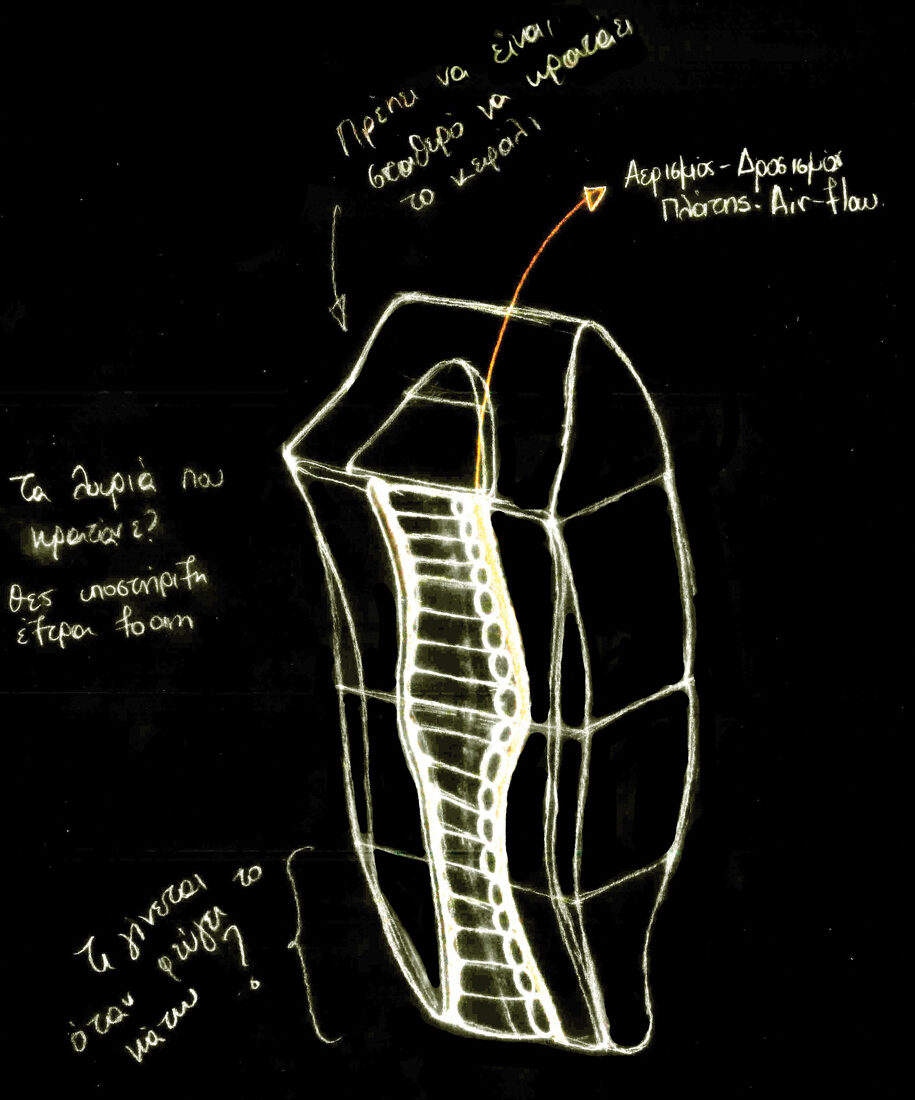 Πρέπει να είναι
σταθερό να κρατάει
το κεφάλι
Αερισμός - Δροσισμός
Πλάτης. Air-flow.
Τα λουριά που
κρατάνε?
θες υποστήριξη
έξτρα foam
Τι γίνεται το
όταν φεύγει
κάτω ?